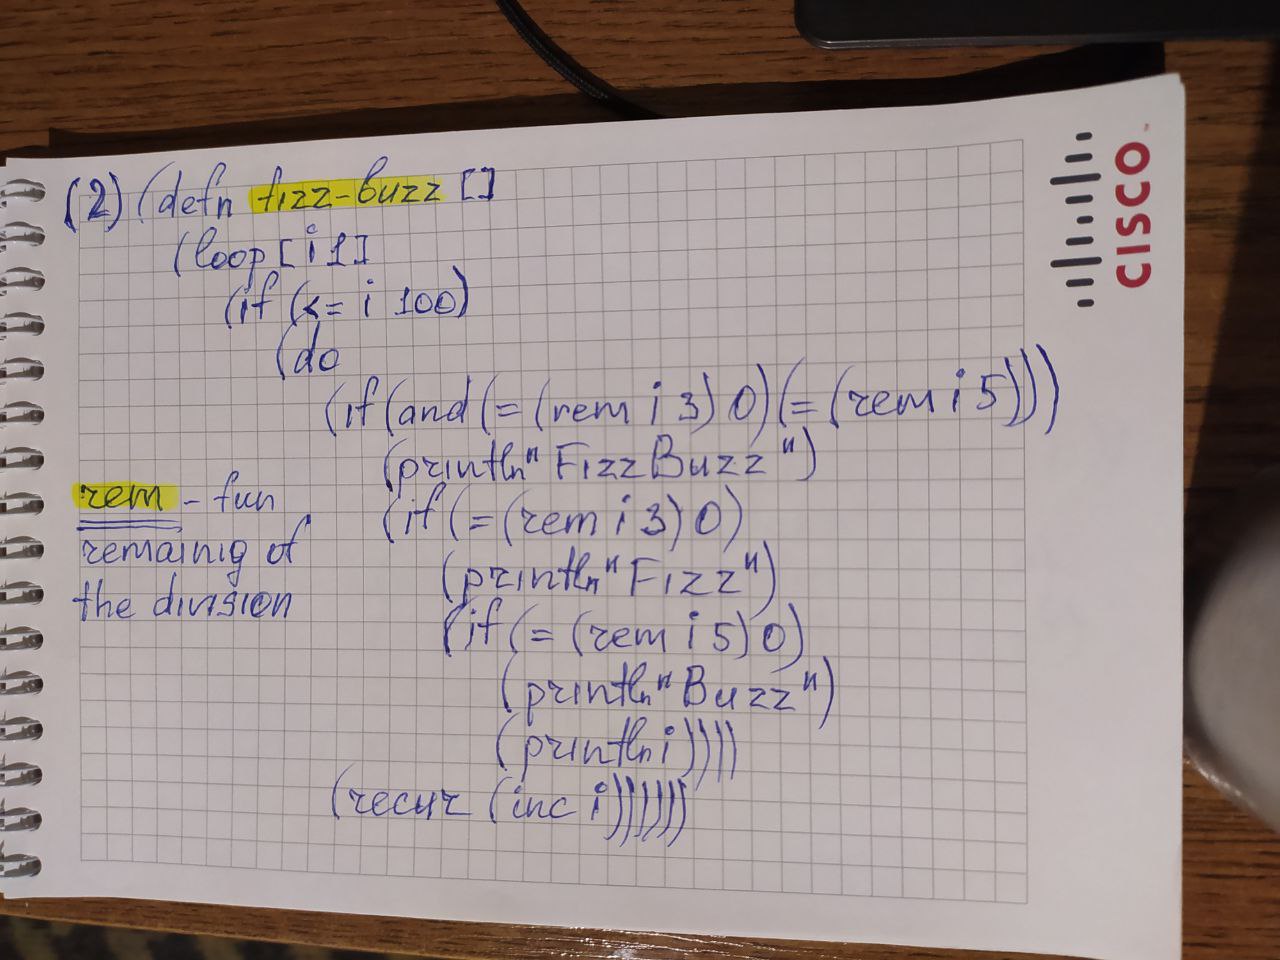 (2) (defn fizz-buzz []
(loop [i 1]
(if (<= i 100)
(do
(if (and (= (rem i 3) 0) (= (rem i 5)))
(println "FizzBuzz")
(if (= (rem i 3) 0)
(println "Fizz")
(if (= (rem i 5) 0)
(println "Buzz")
(println i))))
(recur (inc i))))))
rem - fun
remainig of
the division
CISCO